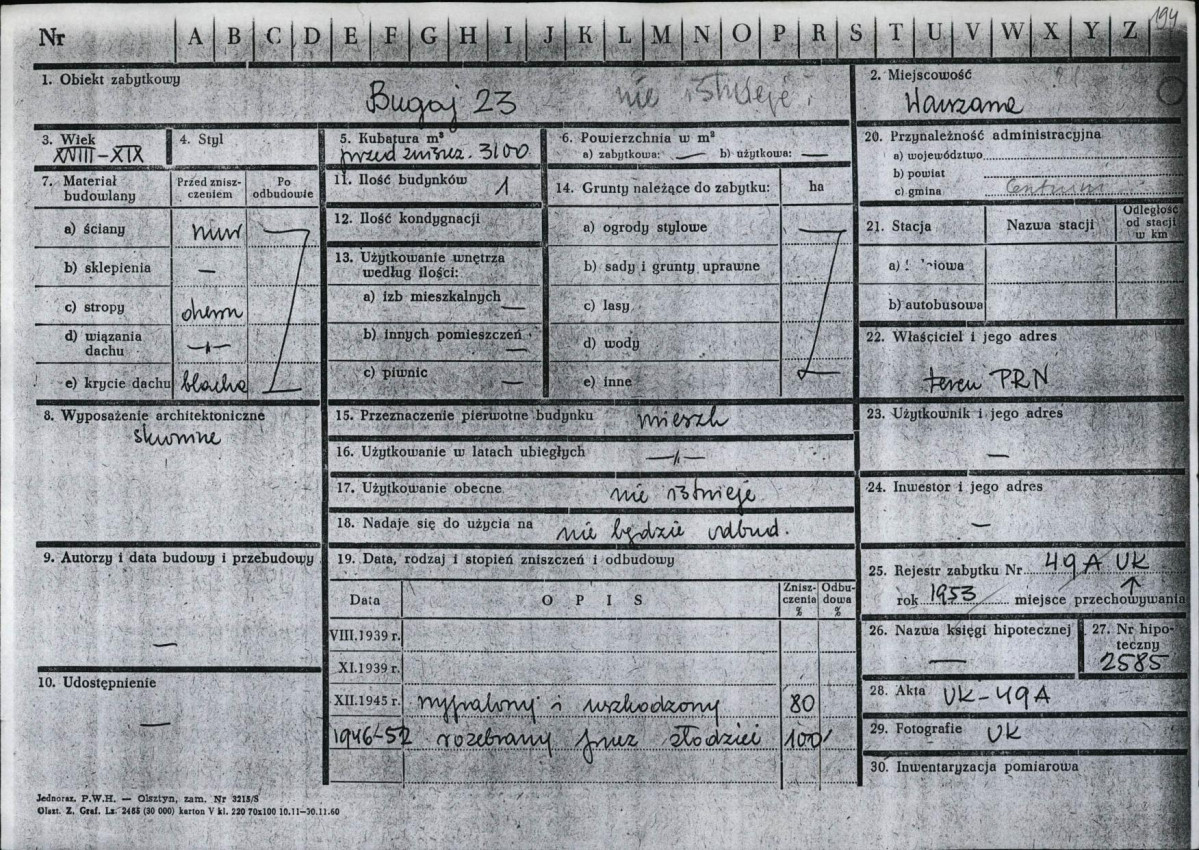 194
Nr A B C D E F G H I J K L M N O P R S T U V W X Y Z
1. Obiekt zabytkowy
Bugaj 23 nie istnieje
2. Miejscowość
Warszawa
3. Wiek
XVIII-XIX
4. Styl
5. Kubatura m³
przed zniszcz. 3100
6. Powierzchnia w m²
a) zabytkowa: — b) użytkowa: —
20. Przynależność administracyjna
a) województwo
b) powiat
c) gmina
7. Materiał budowlany
Przed zniszczeniem
Po odbudowie
a) ściany mur
b) sklepienia —
c) stropy drewn
d) wiązania dachu —〃—
e) krycie dachu blacha
11. Ilość budynków 1
12. Ilość kondygnacji
13. Użytkowanie wnętrza według ilości:
a) izb mieszkalnych —
b) innych pomieszczeń —
c) piwnic —
14. Grunty należące do zabytku: ha
a) ogrody stylowe
b) sady i grunty uprawne
c) lasy
d) wody
e) inne
21. Stacja Nazwa stacji Odległość od stacji w km
a)
b) autobusowa
22. Właściciel i jego adres
teren PRN
8. Wyposażenie architektoniczne
skromne
15. Przeznaczenie pierwotne budynku mieszk
16. Użytkowanie w latach ubiegłych —〃—
17. Użytkowanie obecne nie istnieje
18. Nadaje się do użycia na nie będzie odbud.
23. Użytkownik i jego adres
—
24. Inwestor i jego adres
—
9. Autorzy i data budowy i przebudowy
—
10. Udostępnienie
—
19. Data, rodzaj i stopień zniszczeń i odbudowy
Data OPIS Zniszczenia % Odbudowa %
VIII.1939 r.
XI.1939 r.
XII.1945 r. wypalony i uszkodzony 80
1946-52 rozebrany przez złodziei 100
25. Rejestr zabytku Nr 49A UK
rok 1953 miejsce przechowywania
26. Nazwa księgi hipotecznej
—
27. Nr hipoteczny
2585
28. Akta UK-49A
29. Fotografie UK
30. Inwentaryzacja pomiarowa
Jednoraz. P.W.H. — Olsztyn, zam. Nr 3218/S
Olszt. Z. Graf. Lz. 2468 (30 000) karton V kl. 220 70x100 10.11—30.11.60